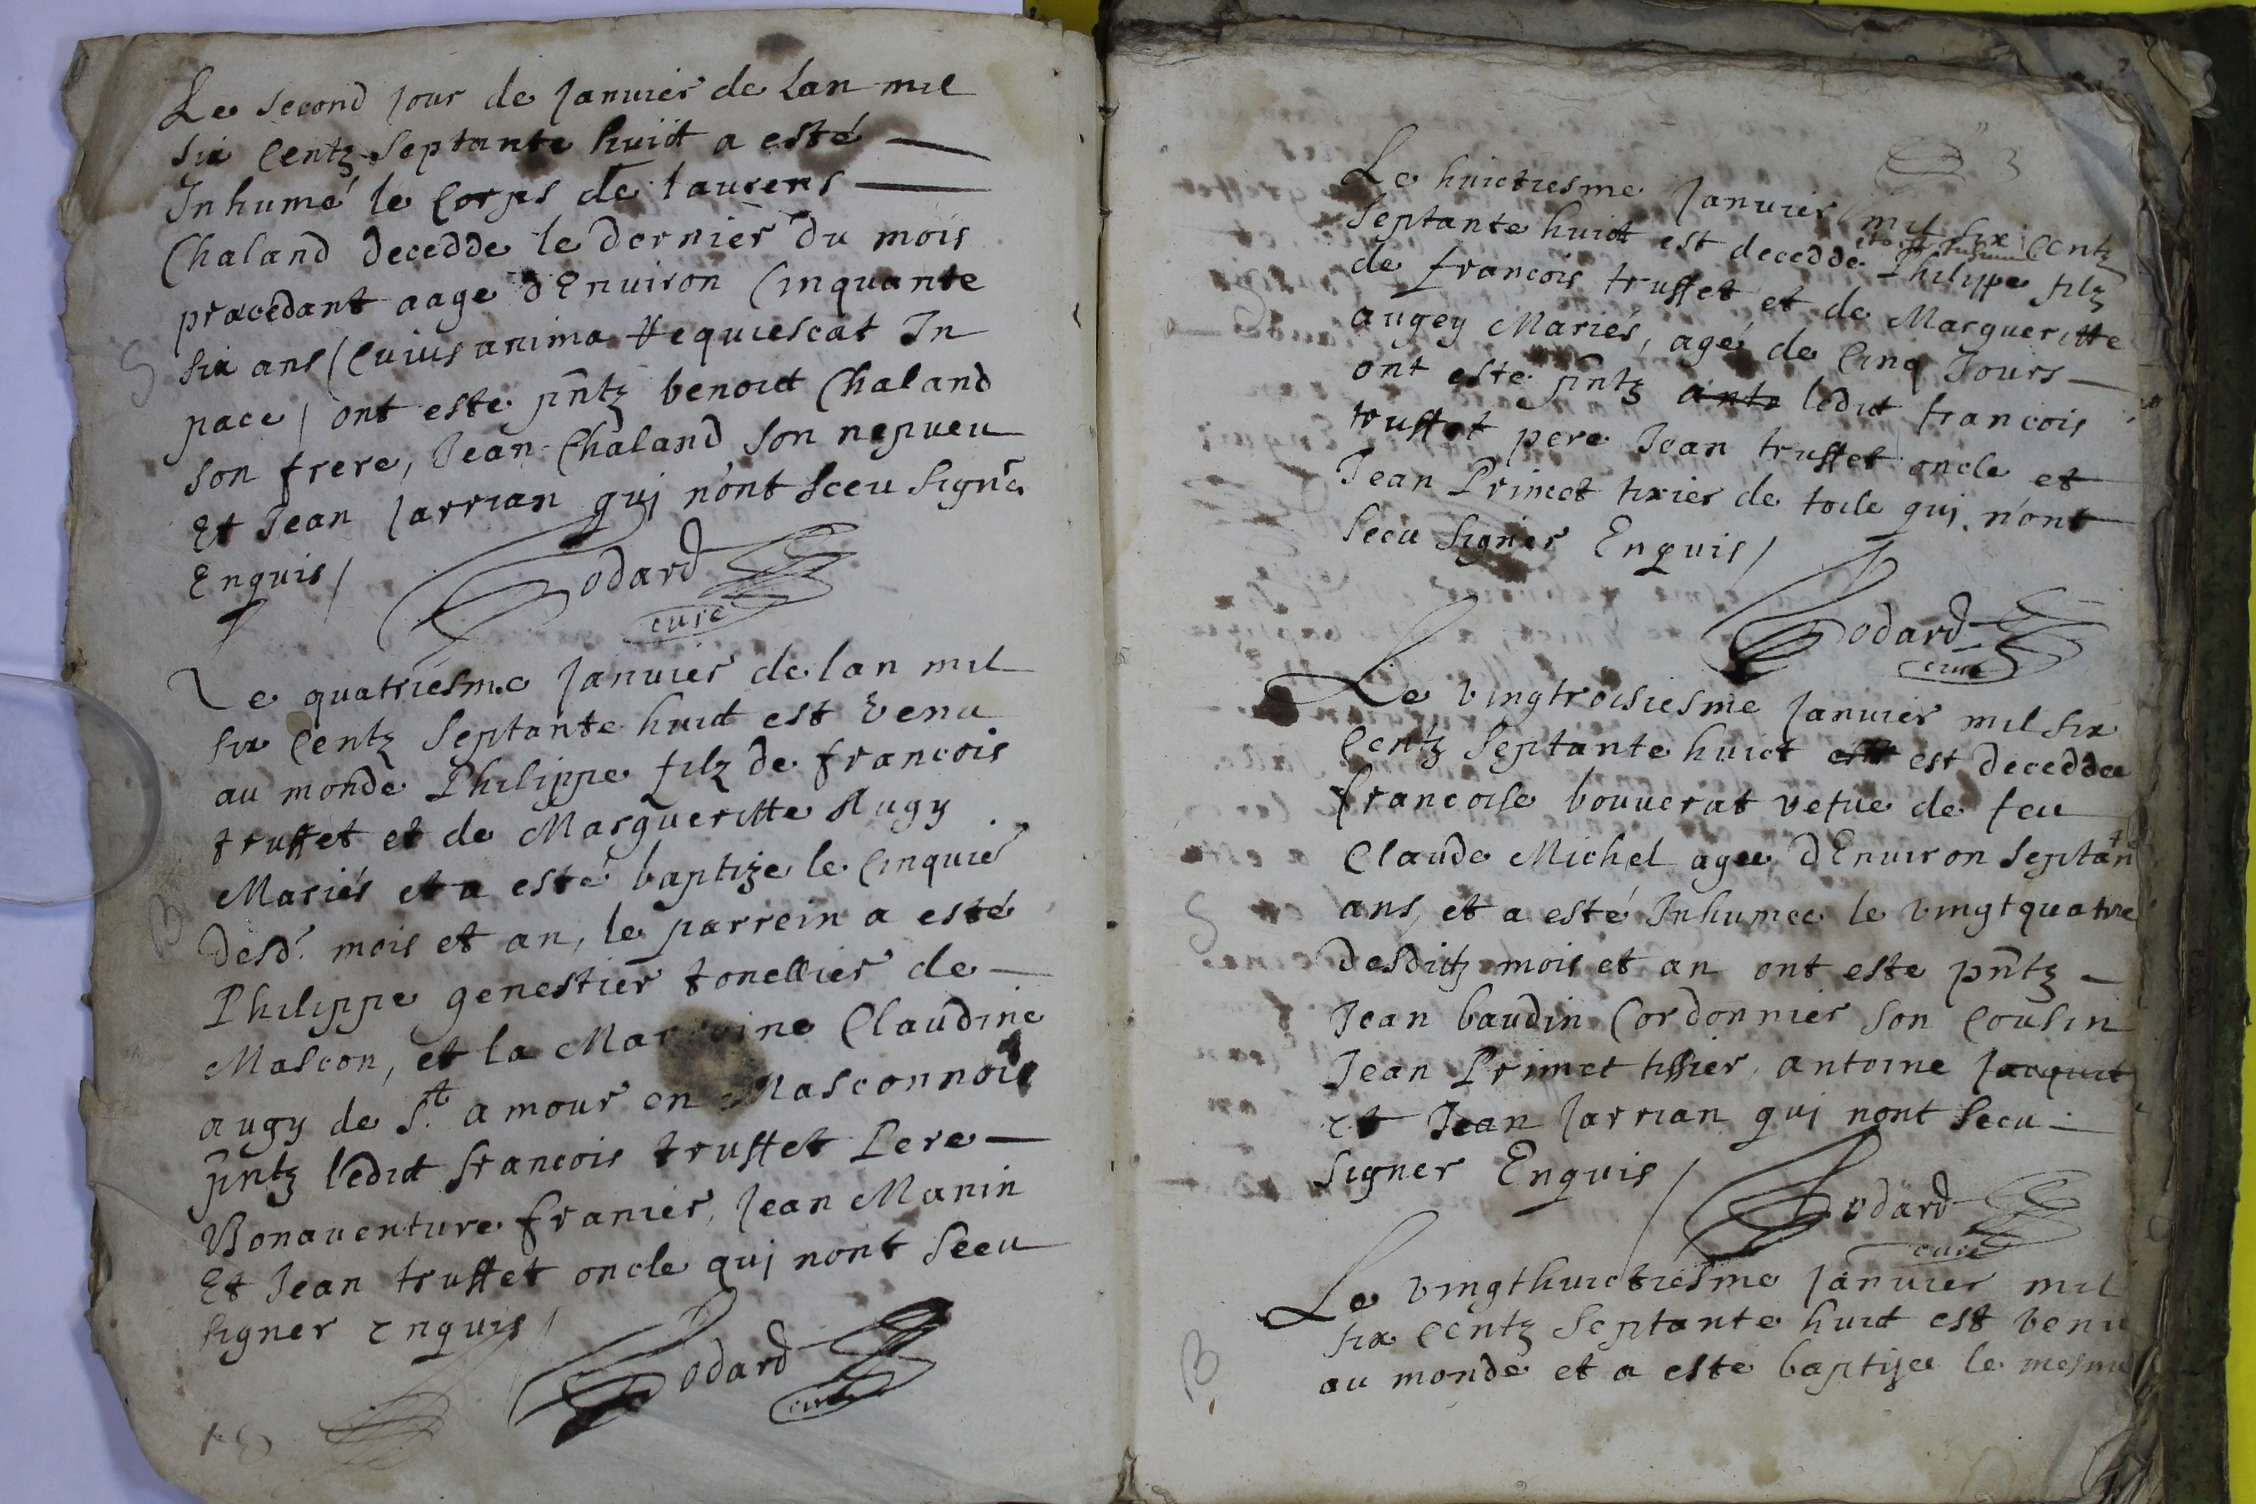 Le second jour de Januier de Lan mil
six Centz Septante huict a esté
Inhumé le Corps de laurens
Chaland decedde le dernier du mois
præcedant aage d'Enuiron Cinquante
six ans / Cuius anima Requiescat In
pace / ont este pñtz benoict Chaland
son frere, Jean Chaland son nepueu
Et Jean Jarrian qui n'ont sceu signer
Enquis /
Godard
curé
Le quatriesme Januier de lan mil
six Centz Septante huict est venu
au monde Philippe filz de francois
truffet et de Margueritte Augy
Mariés et a esté baptize le Cinquie
desd. mois et an, le parrein a esté
Philippe genestier tonellier de
Mascon, et la Marreine Claudine
augy de St. amour en Masconnois
pñtz ledict francois truffet Pere
Bonauenture franier, Jean Manin
Et Jean truffet oncle qui nont Sceu
signer enquis /
Godard
curé
3
Le huictiesme Januier mil six Centz
Septante huict est decedde Philippe filz
de francois truffet et de Margueritte
augey Mariés, agé de Cinq Jours
ont este pñtz ledict francois
truffet pere Jean truffet oncle et
Jean Primet tixier de toile qui n'ont
sceu signer Enquis /
Godard
curé
Le vingtroisiesme Januier mil six
Centz Septante huict est deceddee
francoise bouuerat vefue de feu
Claude Michel agee d'Enuiron septan
ans, et a esté Inhumee le vingtquatre
desditz mois et an ont este pñtz
Jean baudin Cordonnier son Cousin
Jean Primet tissier, antoine Jacquet
et Jean Jarrian qui nont sceu
signer Enquis /
Godard
curé
Le vingthuictiesme Januier mil
six Centz Septante huict est venu
au monde et a este baptizee le mesme
B
S
B
S